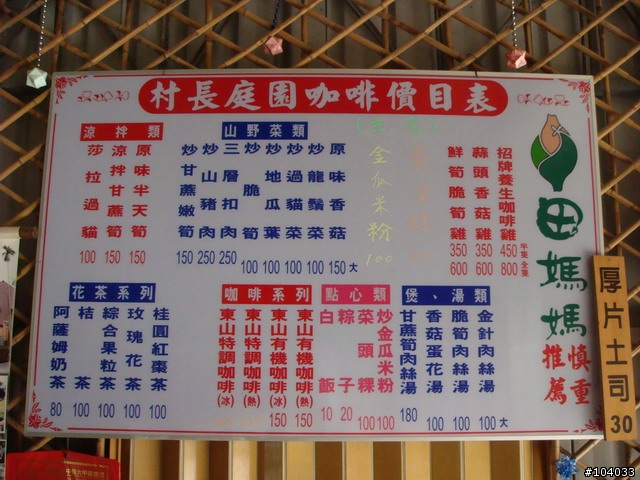 村長庭園咖啡價目表
涼拌類
莎拉過貓 100
涼拌甘蔗筍 150
原味半天筍 150
山野菜類
炒甘蔗嫩筍 150
炒山豬肉 250
三層扣肉 250
炒脆筍 100
炒地瓜葉 100
炒過貓菜 100
炒龍鬚菜 100
原味香菇 150 大
金瓜米粉 100
鮮筍脆筍雞 350 600
蒜頭香菇雞 450 600
招牌養生咖啡雞 450 800
半隻 全隻
田媽媽
慎重推薦
厚片土司 30
花茶系列
阿薩姆奶茶 80
桔茶 100
綜合果粒茶 100
玫瑰花茶 100
桂圓紅棗茶 100
咖啡系列
東山特調咖啡(冰)
東山特調咖啡(熱)
東山有機咖啡(冰) 150
東山有機咖啡(熱) 150
點心類
白飯 10
粽子 20
菜頭粿 100
炒金瓜米粉 100
煲、湯類
甘蔗筍肉絲湯 180
香菇蛋花湯 100
脆筍肉絲湯 100
金針肉絲湯 100 大
#104033